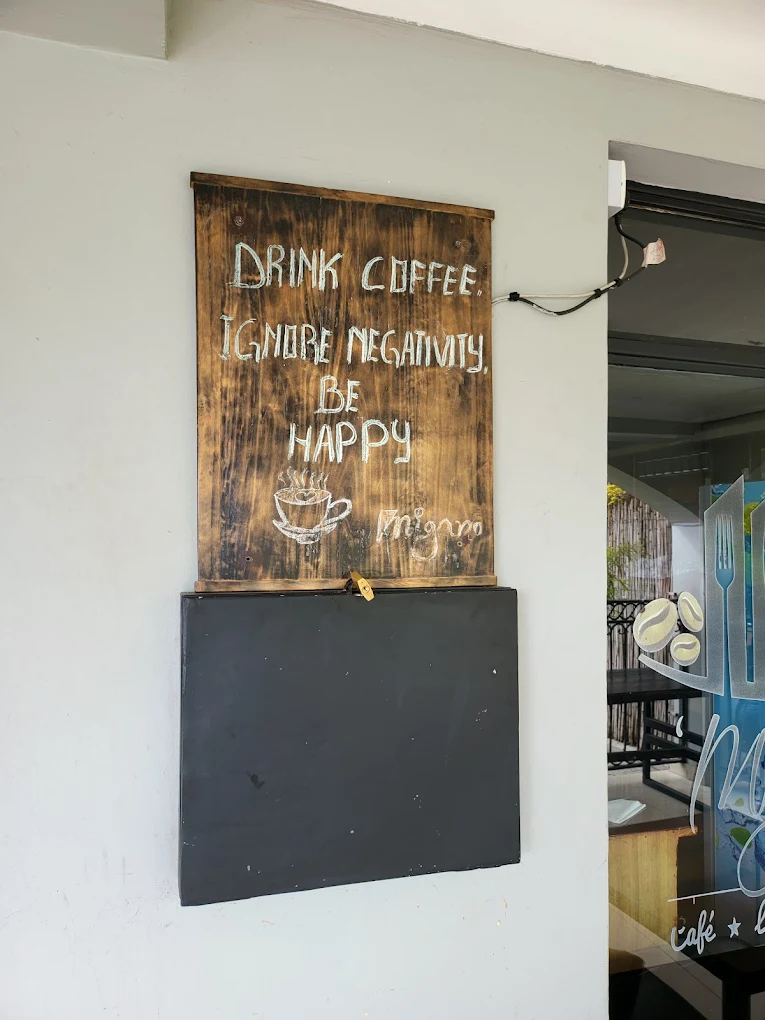 DRINK COFFEE.
IGNORE NEGATIVITY.
BE
HAPPY
Café ★